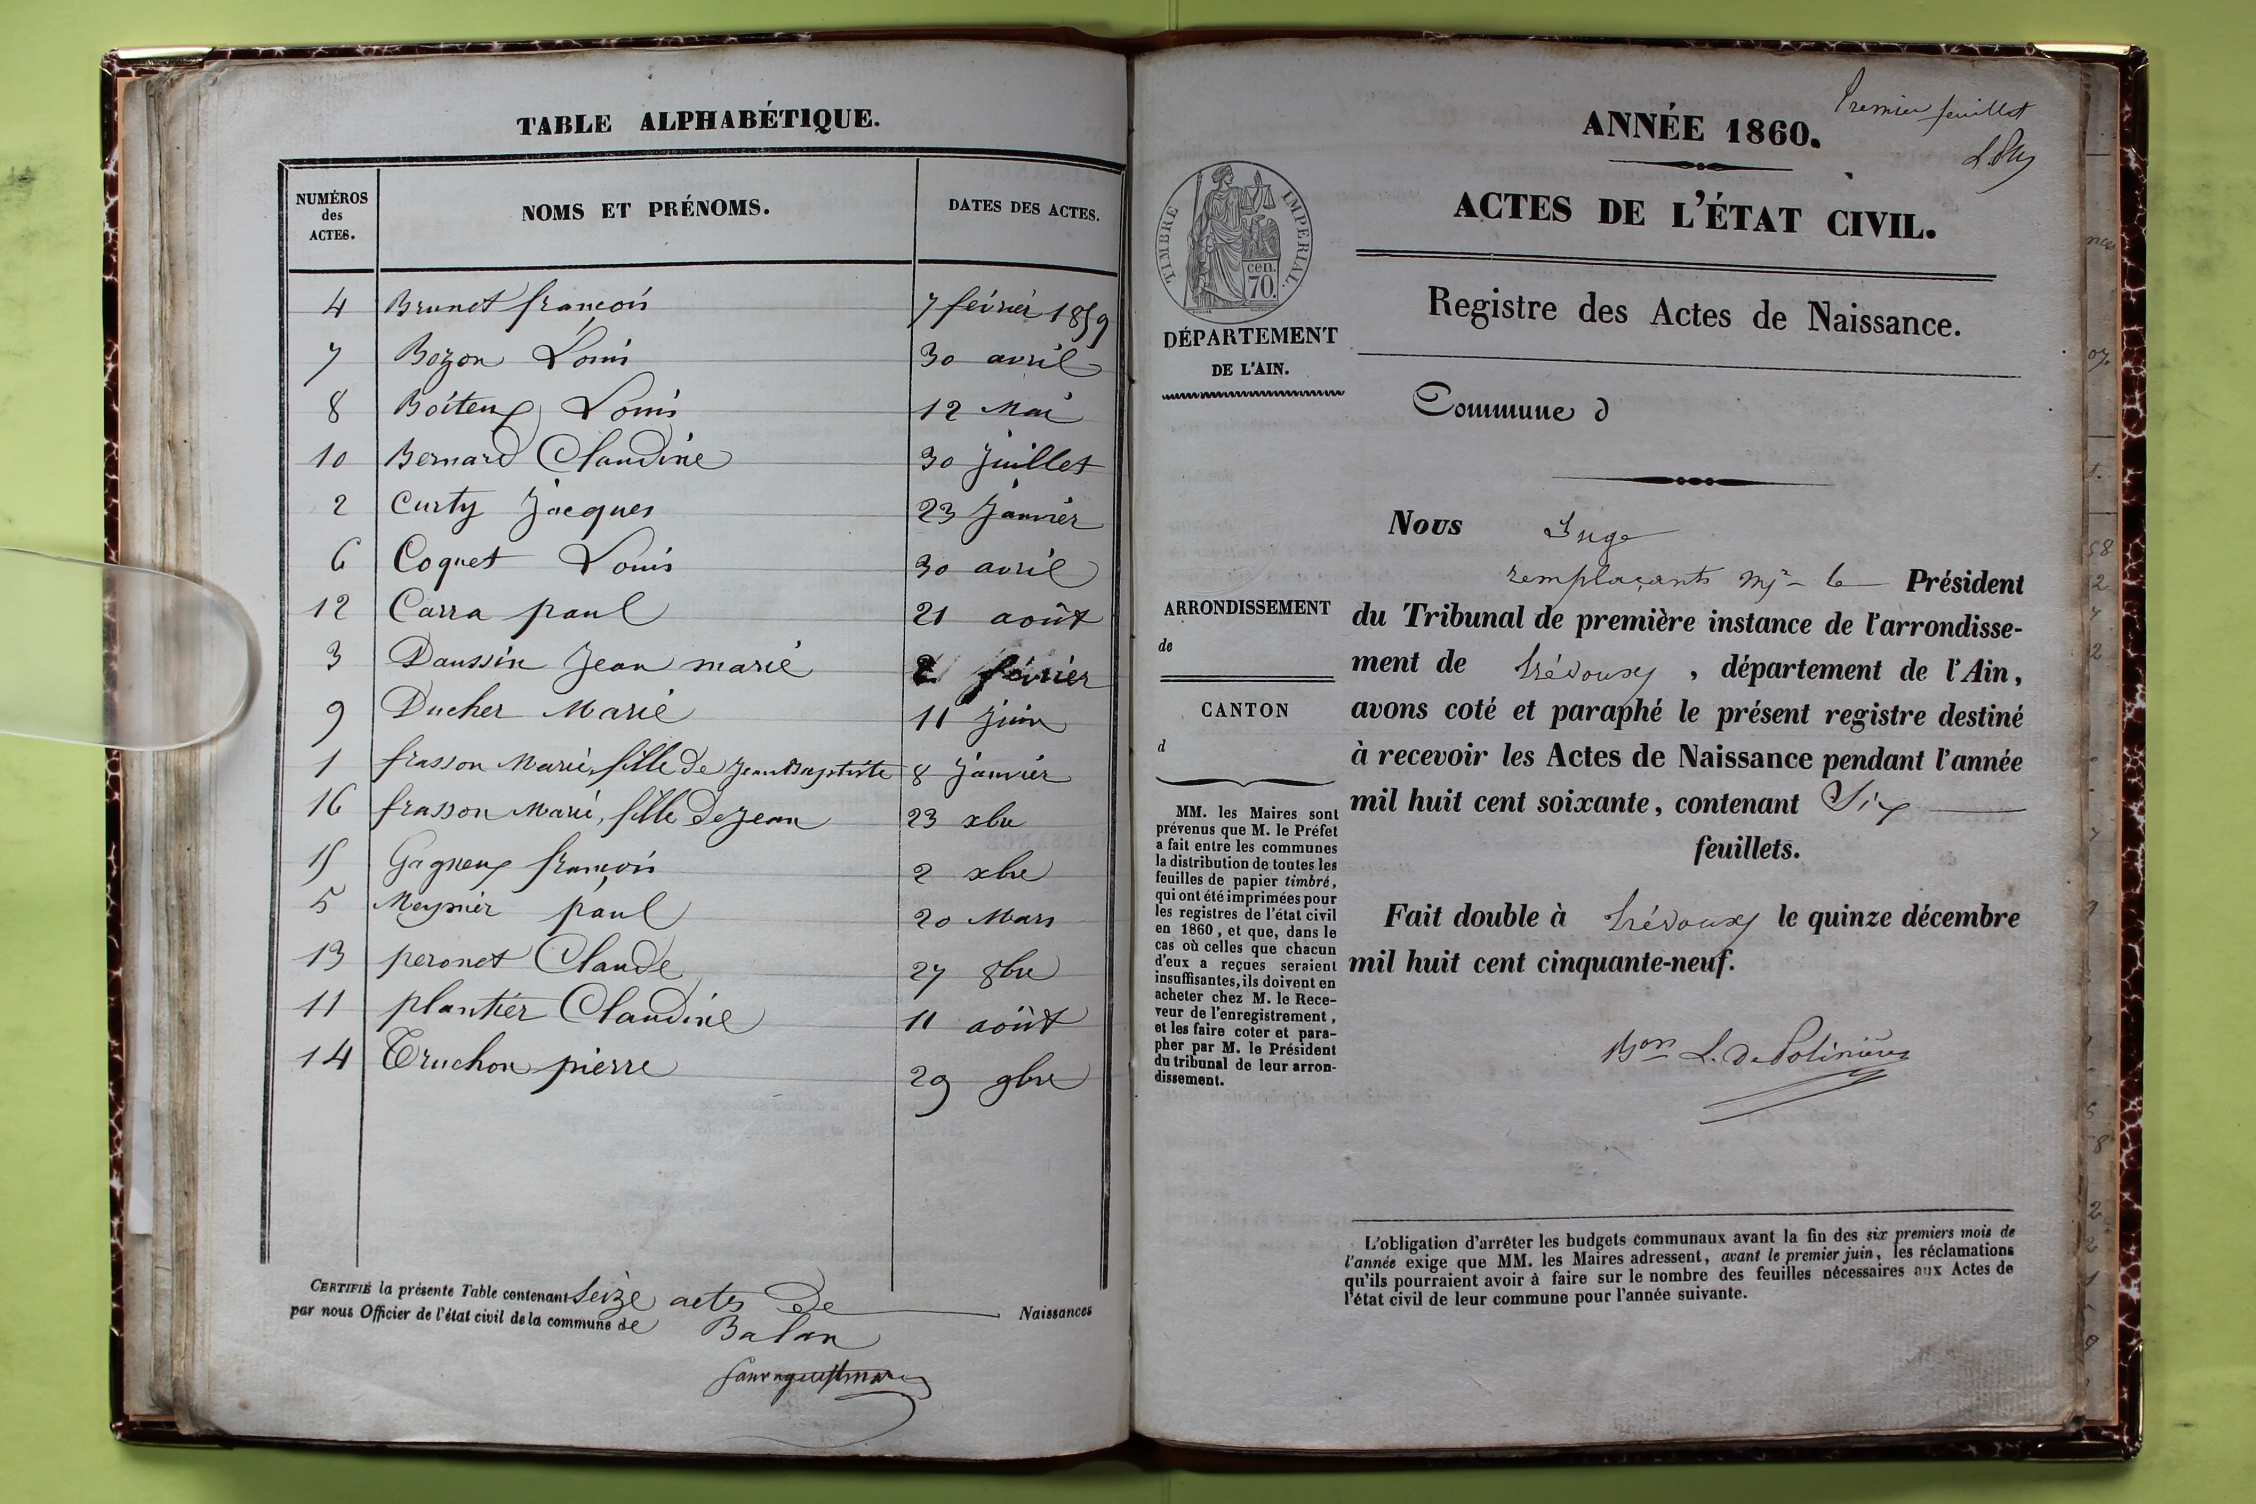 TABLE ALPHABÉTIQUE.
NUMÉROS des ACTES.
NOMS ET PRÉNOMS.
DATES DES ACTES.
4 Brunet françois 7 février 1859
7 Bozon Louis 30 avril
8 Boiteux Louis 12 Mai
10 Bernard Claudine 30 Juillet
2 Curty Jacques 23 Janvier
6 Coquet Louis 30 avril
12 Carra paul 21 août
3 Daussin Jean marie 2 février
9 Ducher Marie 11 Juin
1 frasson Marie, fille de Jean Baptiste 8 Janvier
16 frasson Marie, fille de Jean 23 xbre
15 Gagneux françois 2 xbre
5 Meynier paul 20 Mars
13 peronet Claude 27 8bre
11 plantier Claudine 11 août
14 Truchon pierre 29 9bre
CERTIFIÉ la présente Table contenant Seize actes de Naissances
par nous Officier de l'état civil de la commune de Balan
Premier feuillet
ANNÉE 1860.
ACTES DE L'ÉTAT CIVIL.
Registre des Actes de Naissance.
TIMBRE IMPERIAL.
cen.
70.
DÉPARTEMENT
DE L'AIN.
Commune d
ARRONDISSEMENT
de
CANTON
d
MM. les Maires sont
prévenus que M. le Préfet
a fait entre les communes
la distribution de toutes les
feuilles de papier timbré,
qui ont été imprimées pour
les registres de l'état civil
en 1860, et que, dans le
cas où celles que chacun
d'eux a reçues seraient
insuffisantes, ils doivent en
acheter chez M. le Rece-
veur de l'enregistrement,
et les faire coter et para-
pher par M. le Président
du tribunal de leur arron-
dissement.
Nous Juge
remplaçants Mr le Président
du Tribunal de première instance de l'arrondisse-
ment de trévoux, département de l'Ain,
avons coté et paraphé le présent registre destiné
à recevoir les Actes de Naissance pendant l'année
mil huit cent soixante, contenant Six
feuillets.
Fait double à trévoux le quinze décembre
mil huit cent cinquante-neuf.
Bon L. De Polinière
L'obligation d'arrêter les budgets communaux avant la fin des six premiers mois de
l'année exige que MM. les Maires adressent, avant le premier juin, les réclamations
qu'ils pourraient avoir à faire sur le nombre des feuilles nécessaires aux Actes de
l'état civil de leur commune pour l'année suivante.